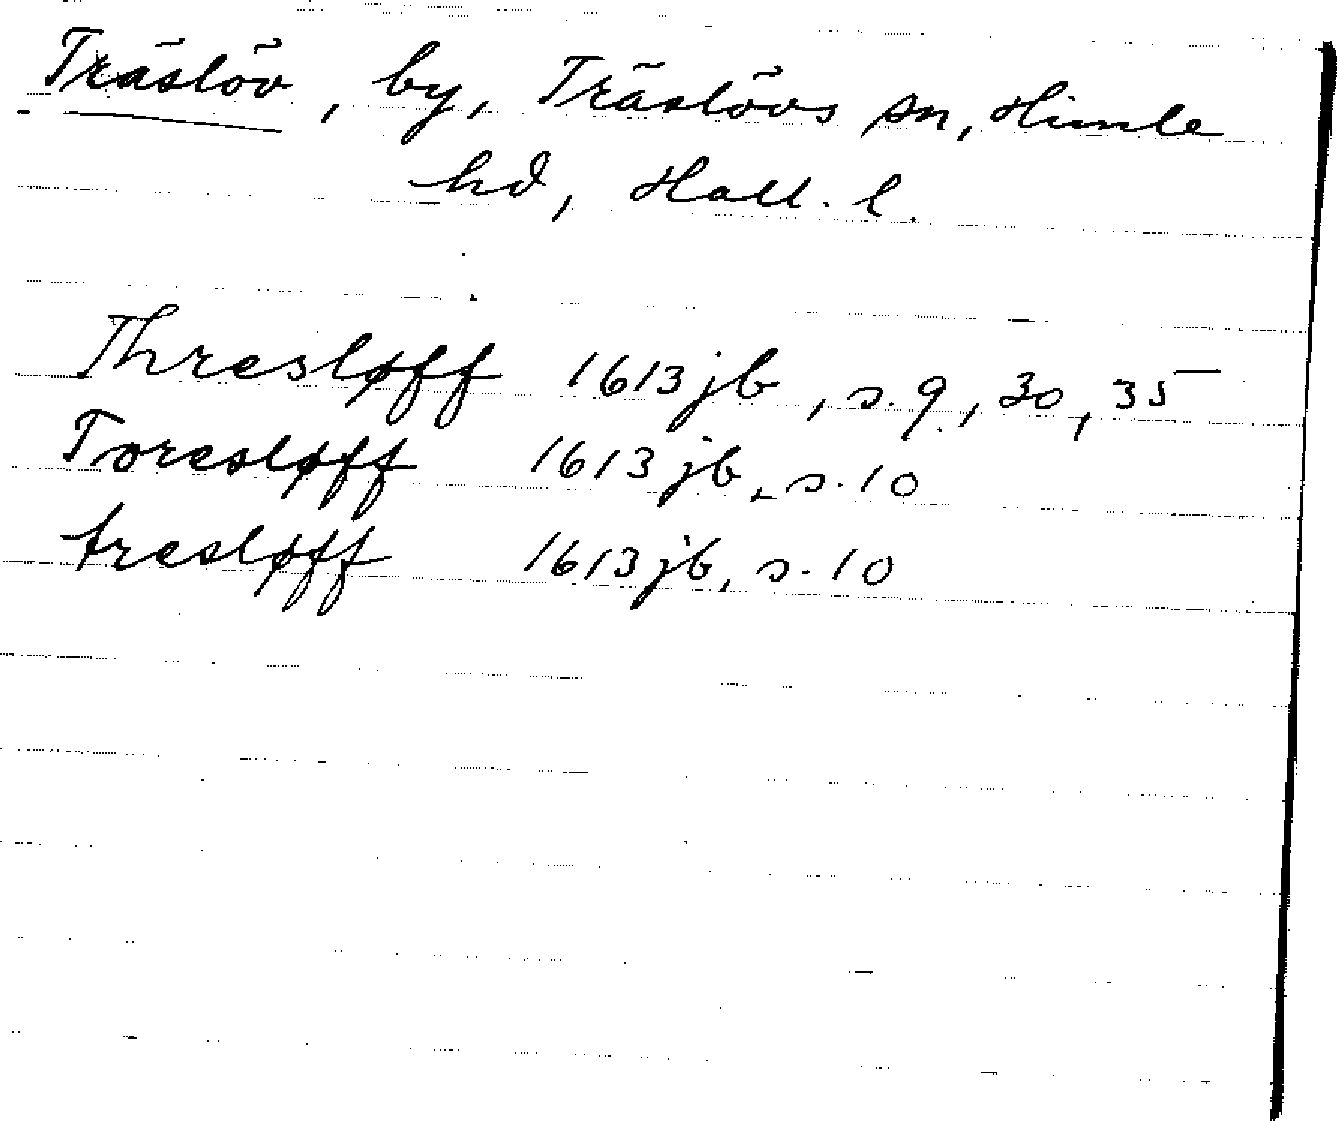 Träslöv, by, Träslövs sn, Himle
hd, Hall. l.
Thresløff 1613 jb, s. 9, 30, 35
Toresløff 1613 jb, s. 10
tresløff 1613 jb, s. 10